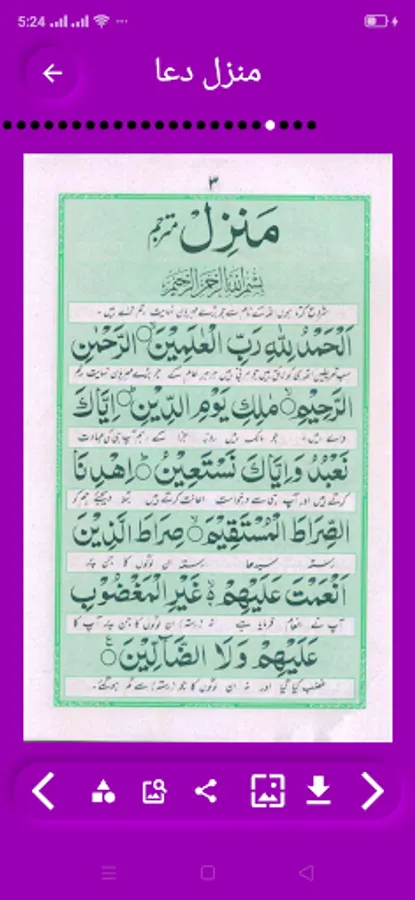 5:24
منزل دعا
٣
مَنزِلْ مترجم
بِسْمِ اللهِ الرَّحْمٰنِ الرَّحِيْمِ
شروع کرتا ہوں اللہ کے نام سے جو بڑے مہربان نہایت رحم والے ہیں۔
اَلْحَمْدُ لِلّٰهِ رَبِّ الْعٰلَمِيْنَ الرَّحْمٰنِ
سب تعریفیں اللہ کو لائق ہیں جو مربی ہیں ہر ہر عالم کے جو بڑے مہربان نہایت رحم
الرَّحِيْمِ مٰلِكِ يَوْمِ الدِّيْنِ اِيَّاكَ
والے ہیں جو مالک ہیں روز جزا کے ہم آپ ہی کی عبادت
نَعْبُدُ وَاِيَّاكَ نَسْتَعِيْنُ اِهْدِنَا
کرتے ہیں اور آپ ہی سے درخواست اعانت کرتے ہیں بتلا دیجئے ہم کو
الصِّرَاطَ الْمُسْتَقِيْمَ صِرَاطَ الَّذِيْنَ
رستہ سیدھا رستہ ان لوگوں کا جن پر
اَنْعَمْتَ عَلَيْهِمْ غَيْرِ الْمَغْضُوْبِ
آپ نے انعام فرمایا ہے نہ رستہ ان لوگوں کا جن پر آپ کا
عَلَيْهِمْ وَلَا الضَّآلِّيْنَ
غضب کیا گیا اور نہ ان لوگوں کا جو رستہ سے گم ہوگئے۔